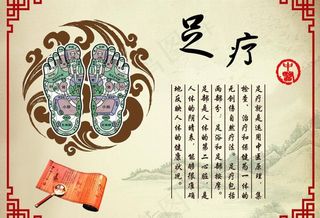 足疗
中医
足疗就是运用中医原理，集
检查、治疗和保健为一体的
无创伤自然疗法。足疗包括
两部分：足浴和足部按摩。
足部是人体的第二心脏，是
人体的阴晴表，能够很准确
地反映人体的健康状况。